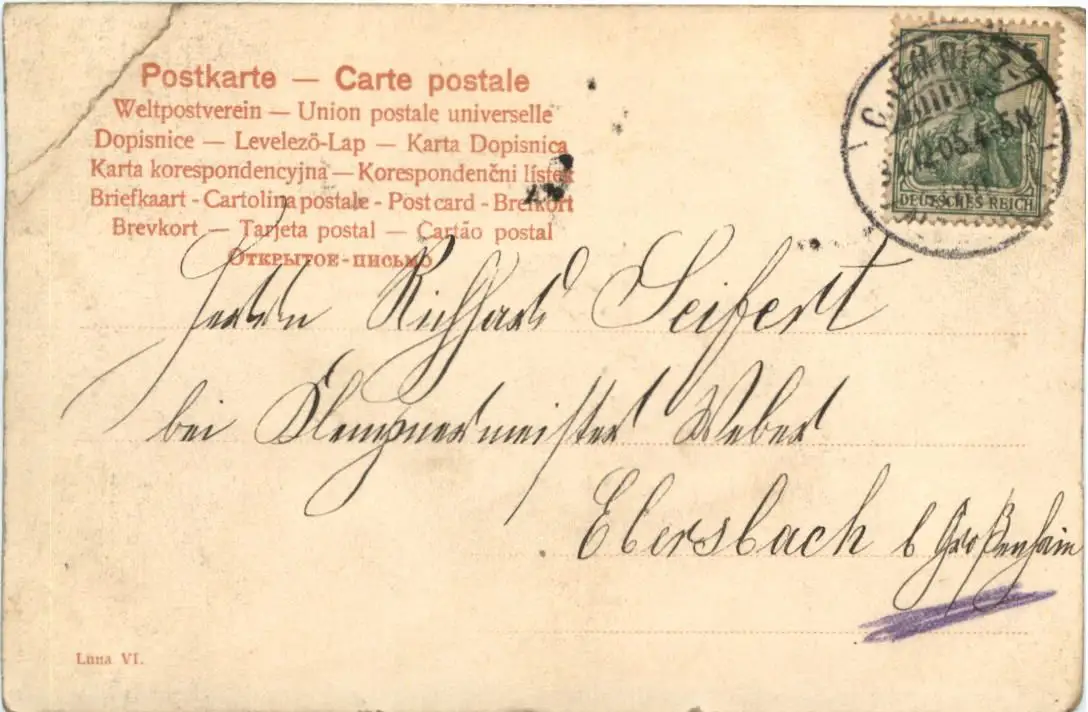 Postkarte — Carte postale
Weltpostverein — Union postale universelle
Dopisnice — Levelező-Lap — Karta Dopisnica
Karta korespondencyjna — Korespondenční lístek
Briefkaart - Cartolina postale - Post card - Brefkort
Brevkort — Tarjeta postal — Cartão postal
Открытое-письмо
CHEMNITZ-
12.05.4-5N
DEUTSCHES REICH
Herrn Richhard Seifert
bei Klempnermeister Weber
Ebersbach b Großenhain
Luna VI.